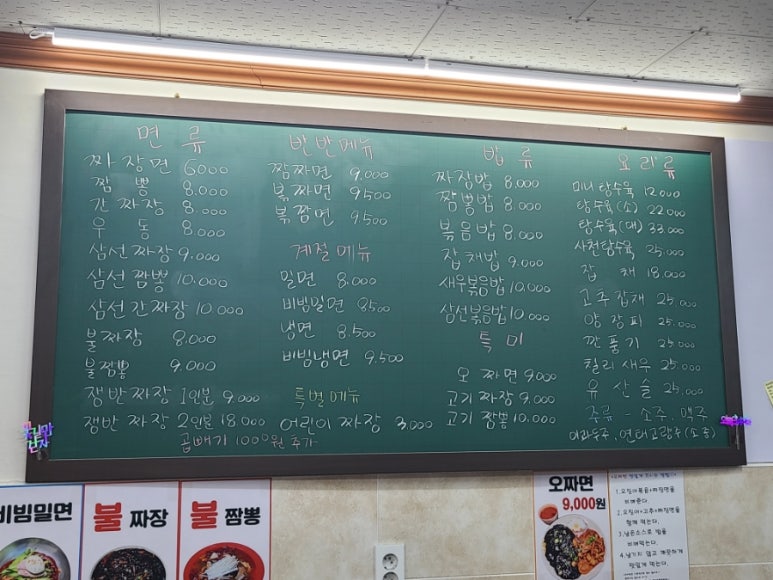 면 류
짜장면 6000
짬 뽕 8.000
간 짜장 8.000
우 동 8.000
삼선 짜장 9.000
삼선 짬뽕 10.000
삼선 간짜장 10.000
불짜장 8.000
불짬뽕 9.000
쟁반 짜장 1인분 9.000
쟁반 짜장 2인분 18.000
곱빼기 1000원 추가
반반메뉴
짬짜면 9.000
볶짜면 9500
볶짬면 9.500
계절 메뉴
밀면 8.000
비빔밀면 8500
냉면 8.500
비빔냉면 9.500
특별메뉴
어린이 짜장 3.000
밥 류
짜장밥 8.000
짬뽕밥 8.000
볶음밥 8.000
잡채밥 9.000
새우볶음밥 10.000
삼선볶음밥 10.000
특 미
오 짜면 9.000
고기 짜장 9.000
고기 짬뽕 10.000
요리류
미니 탕수육 12.000
탕수육(소) 22.000
탕수육(대) 33.000
사천탕수육 25.000
잡 채 18.000
고추잡채 25.000
양장피 25.000
깐풍기 25.000
칠리새우 25.000
유산슬 25.000
주류 - 소주, 맥주
이과두주, 연태고량주(소,중)
비빔밀면
불 짜장
불 짬뽕
오짜면
9,000원
1.오징어볶음+짜장면을
비벼준다.
2.오징어+고추+짜장면을
함께 먹는다.
3.남은소스로 밥을
비벼먹는다.
4.남기지 않고 깨끗하게
맛있게 먹는다.